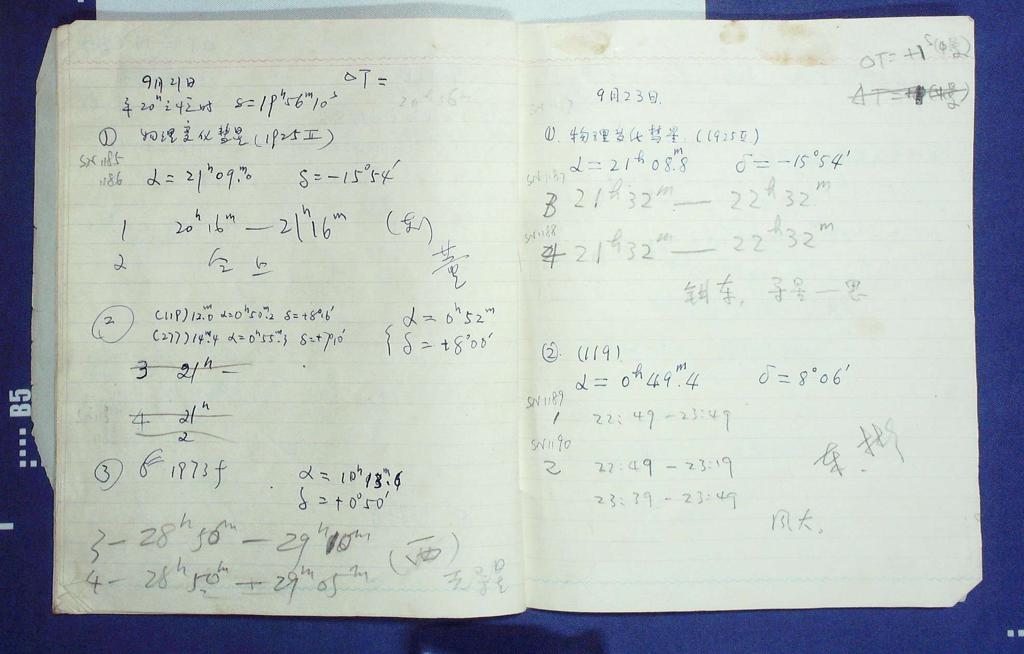 9月21日 ΔT=
20ʰ 时 S=19ʰ56ᵐ10ˢ
① 物理变化彗星(1925Ⅱ)
SN1185
1186 α=21ʰ09.ᵐ0 δ=-15°54′
1 20ʰ16ᵐ — 21ʰ16ᵐ (东)
2 仝上
② (119)12.ᵐ0 α=0ʰ50.ᵐ2 δ=+8°16′ α=0ʰ52ᵐ
(277)14.ᵐ4 α=0ʰ55.ᵐ3 δ=+7°10′ δ=+8°00′
3 21ʰ —
4 21ʰ
2
③ 1973f α=10ʰ13.ᵐ6
δ=+0°50′
3 - 28ʰ50ᵐ - 29ʰ10ᵐ (西)
4 - 28ʰ50ᵐ + 29ᵐ05ᵐ 无导星
ΔT=+1ˢ
9月23日.
①. 物理变化彗星.(1925Ⅱ.)
α=21ʰ08.ᵐ8 δ=-15°54′
SN1187
3 21ʰ32ᵐ — 22ʰ32ᵐ
SN1188
4 21ʰ32ᵐ — 22ʰ32ᵐ
导星一
②. (119).
α=0ʰ49.ᵐ4 δ=8°06′
SN1189
1 22:49 - 23:49
SN1190
2 22:49 - 23:19 东.
23:39 - 23:49
风大.
B5